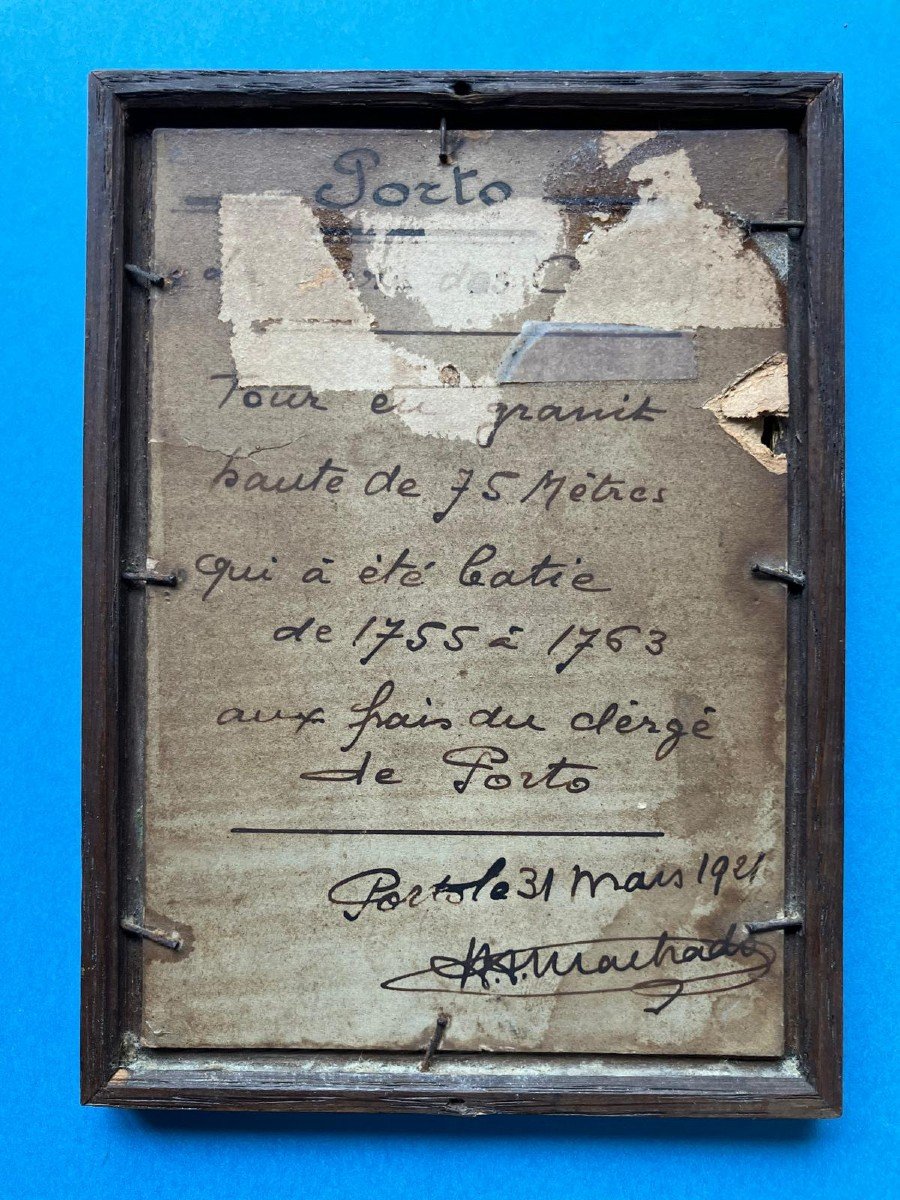 Porto
des
Tour en granit
haute de 75 Mètres
qui à été batie
de 1755 à 1763
aux frais du clérgé
de Porto
Porto le 31 Mars 1921
Machado